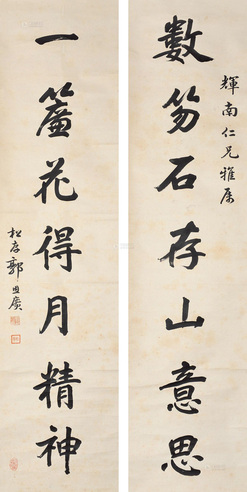 輝南仁兄雅属
數笏石存山意思
一簾花得月精神
松存郭